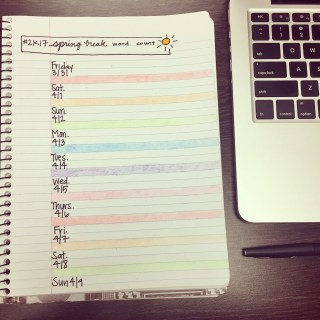 #2K17 spring break word count
Friday
3/31
Sat.
4/1
Sun.
4/2
Mon.
4/3
Tues.
4/4
Wed.
4/5
Thurs.
4/6
Fri.
4/7
Sat.
4/8
Sun 4/9
caps lock
shift
fn
control
option